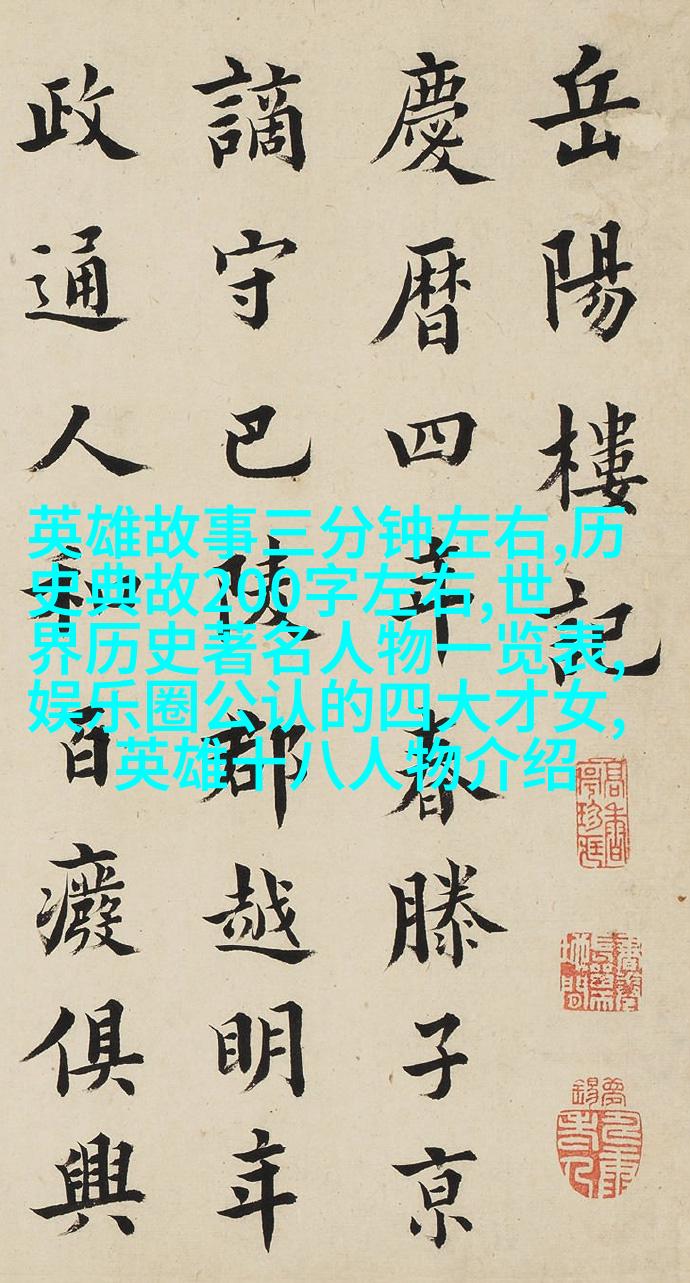 岳陽樓記
慶曆四年春滕子京
謫守巴陵郡越明年
政通人和百癈俱興
英雄故事三分钟左右,历
史典故200字左右,世
界历史著名人物一览表,
娱乐圈公认的四大才女,
英雄十八人物介绍